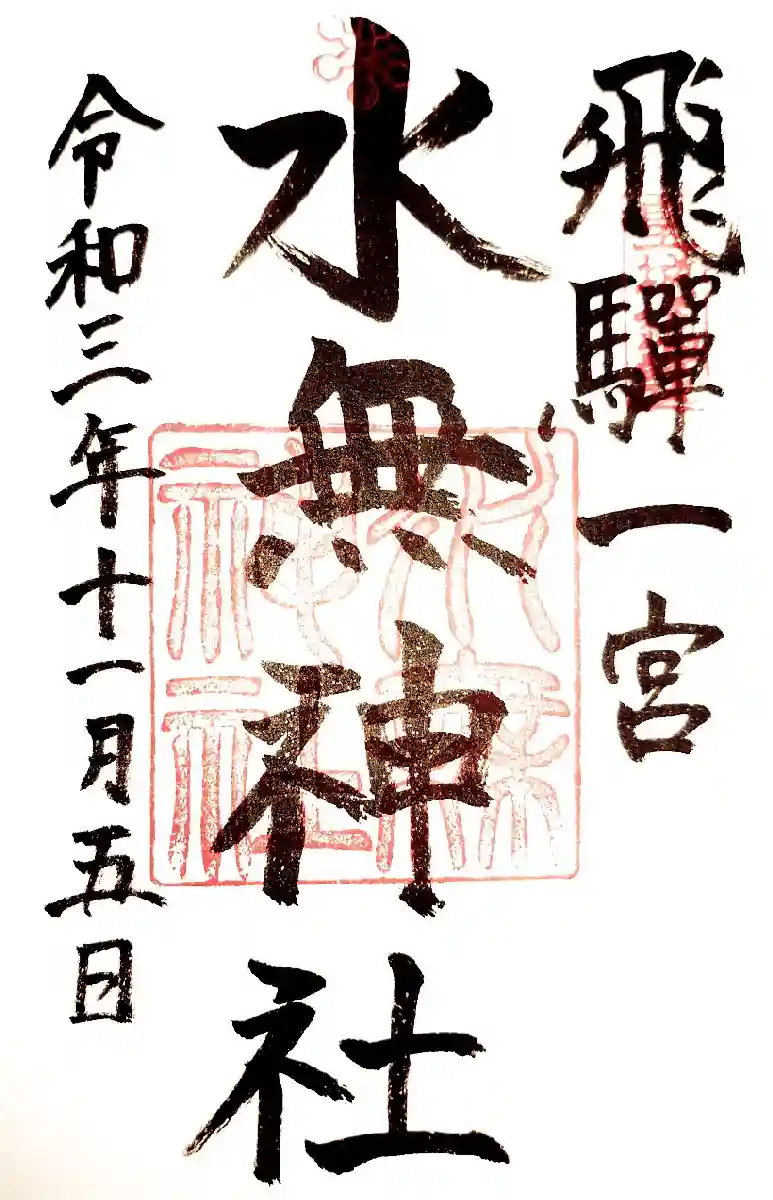 飛驒一宮
水無神社
令和三年十一月五日
水無神社